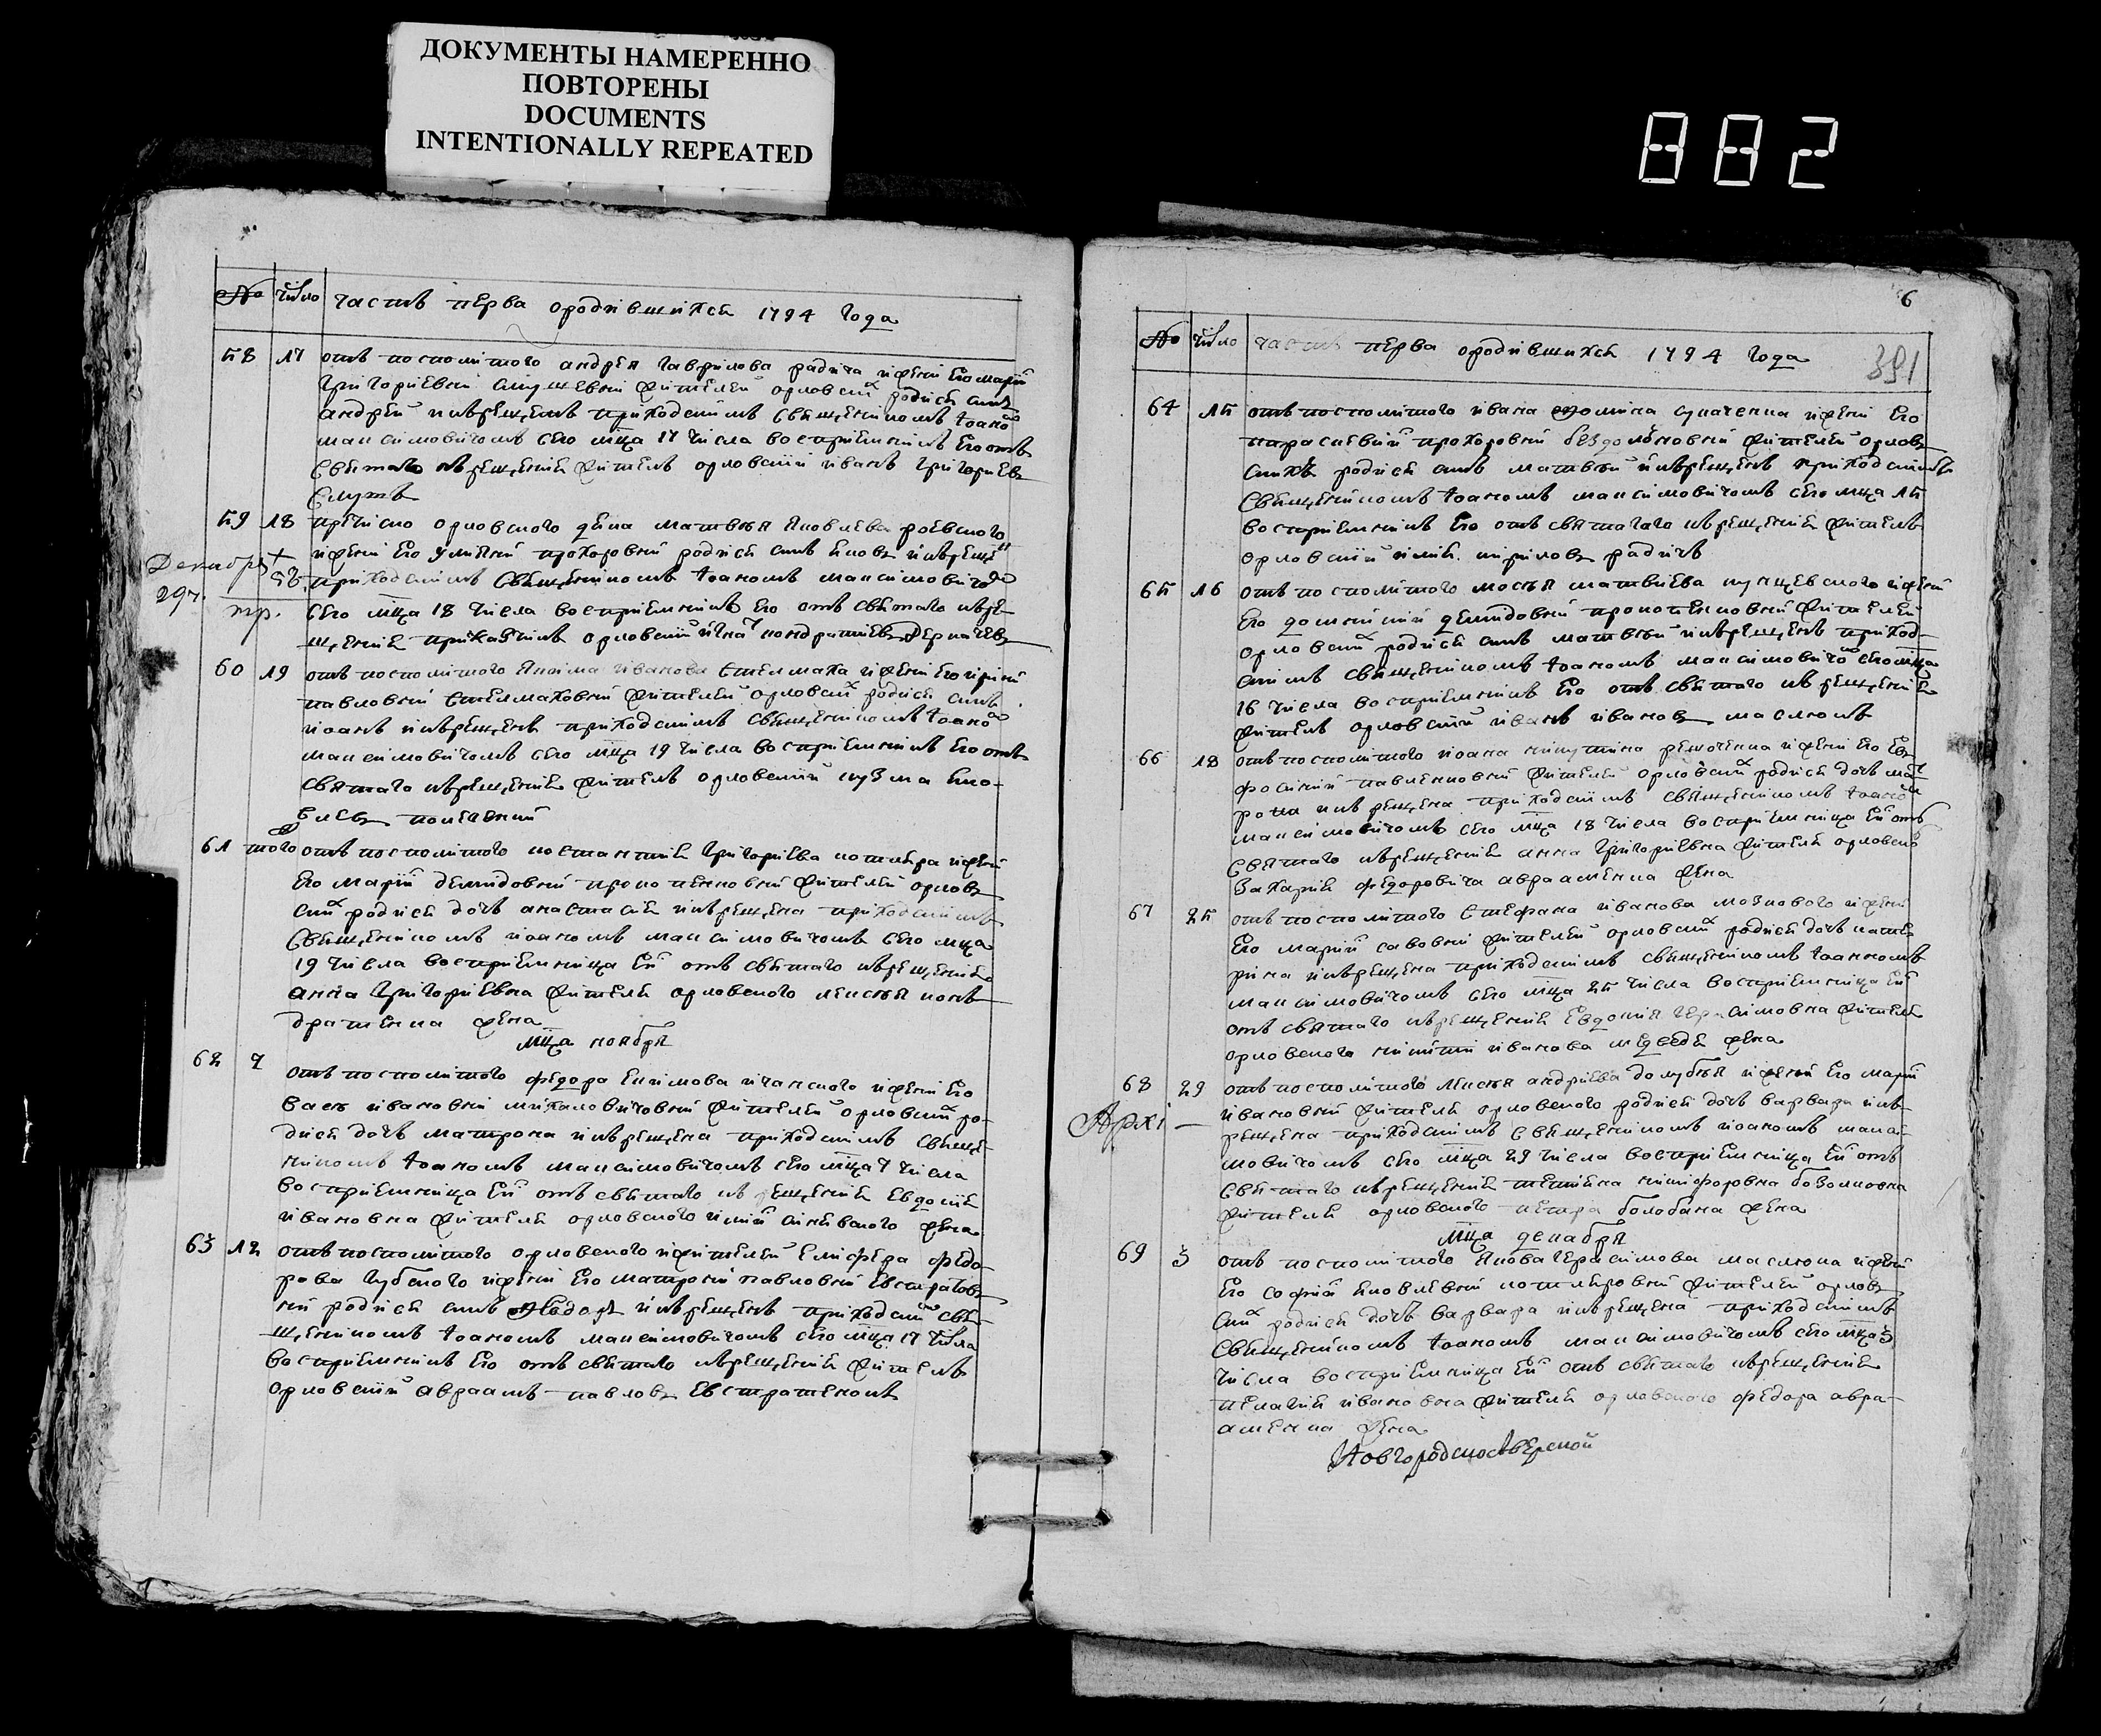 ДОКУМЕНТЫ НАМЕРЕННО
ПОВТОРЕНЫ
DOCUMENTS
INTENTIONALLY REPEATED
882
№ число часть перва о родившихся 1794 года
58 17 отъ посполитого андрея гаврилова радича и жени его марии
григориевни жителей орловских родися синъ
андрей и крещенъ приходскимъ священикомъ иоаном
максимовичомъ сего мца 17 числа восприемникъ его отъ
святаго крещения житель орловский иванъ григориев
59 18 орловского дяка матвея яковлева роевского
и жени его улияни прохоровни родися синъ яков и крещен
приходскимъ священикомъ иоаномъ максимовичом
сего мца 18 числа восприемникъ его отъ святаго кре-
щения орловский кондратиев деркачев
Декабря
29 ч.
60 19 отъ посполитого якима иванова стелмаха и жени его ирини
павловни стелмаховни жителей орловских родися синъ
иоанъ и крещенъ приходскимъ священикомъ иоаном
максимовичомъ сего мца 19 числа восприемникъ его отъ
святаго крещения житель орловский кузма яко-
влев
61 того отъ посполитого константия григориева котляра и жени
его марии демидовни прокопенковни жителей орлов
ских родися дочъ анастасия и крещена приходскимъ
священикомъ иоаномъ максимовичомъ сего мца
19 числа восприемница ей отъ святаго крещения
анна григориевна жителя орловского алексея кон
дратенка жена
мца ноября
62 7 отъ посполитого федора екимова ичанского и жени его
васы ивановни михаловичовни жителей орловских ро-
дися дочъ матрона и крещена приходскимъ свяще-
никомъ иоаномъ максимовичомъ сего мца 7 числа
восприемница ей отъ святаго крещения евдокия
ивановна жителя орловского жена
63 12 отъ посполитого орловского и жителей елисфера федо-
рова губского и жени его матрони павловни евстратов
ни родися синъ и крещенъ приходским свя-
щеникомъ иоаномъ максимовичомъ сего мца 17 числа
восприемникъ его отъ святаго крещения житель
орловский авраамъ павлов евстратенокъ
6
391
№ число часть перва о родившихся 1794 года
64 15 отъ посполитого ивана фомина супаченка и жени его
параскевии прохоровни жителей орлов
скихъ родися синъ матвей и крещенъ приходскимъ
священикомъ иоаномъ максимовичомъ сего мца 15
восприемникъ его отъ святагаго крещения житель
орловский кирилов радичъ
65 16 отъ посполитого мосея матвиева кунцевского и жени
его домникии демидовни прокопенковни жителей
орловских родися синъ матвей и крещенъ приход-
скимъ священикомъ иоаномъ максимовичом сего мца
16 числа восприемникъ его отъ святаго крещения
житель орловский иванъ иванов маслюкъ
66 18 отъ посполитого иоана никитина ремаченка и жени его ев
фосинии павленковни жителей орловских родися дочъ мат
рона и крещена приходскимъ священикомъ иоаном
максимовичомъ сего мца 18 числа восприемница ей отъ
святаго крещения анна григориевна жителя орловско
захария федоровича авраменка жена
67 25 отъ посполитого стефана иванова мазнового и жени
его марии савовни жителей орловских родися дочъ кате
рина и крещена приходскимъ священикомъ иоанномъ
максимовичомъ сего мца 25 числа восприемница ей
отъ святаго крещения евдокия герасимовна жителя
орловского никити иванова медведя жена
68 29 отъ посполитого алексея андриева голубея и жени его марии
ивановни жителя орловского родися дочъ варвара и кре-
щена приходскимъ священикомъ иоаномъ макси-
мовичомъ сего мца 29 числа восприемница ей отъ
святаго крещения никифоровна
жителя орловского петра болобана жена
Архі
мца декабря
69 3 отъ посполитого якова герасимова маслюка и жени
его софии яковлевни котляровни жителей орлов
ских родися дочъ варвара и крещена приходскимъ
священикомъ иоаномъ максимовичомъ сего мца 3
числа восприемница ей отъ святаго крещения
пелагия ивановна жителя орловского федора авра-
аменка жена
Новгородсиверской